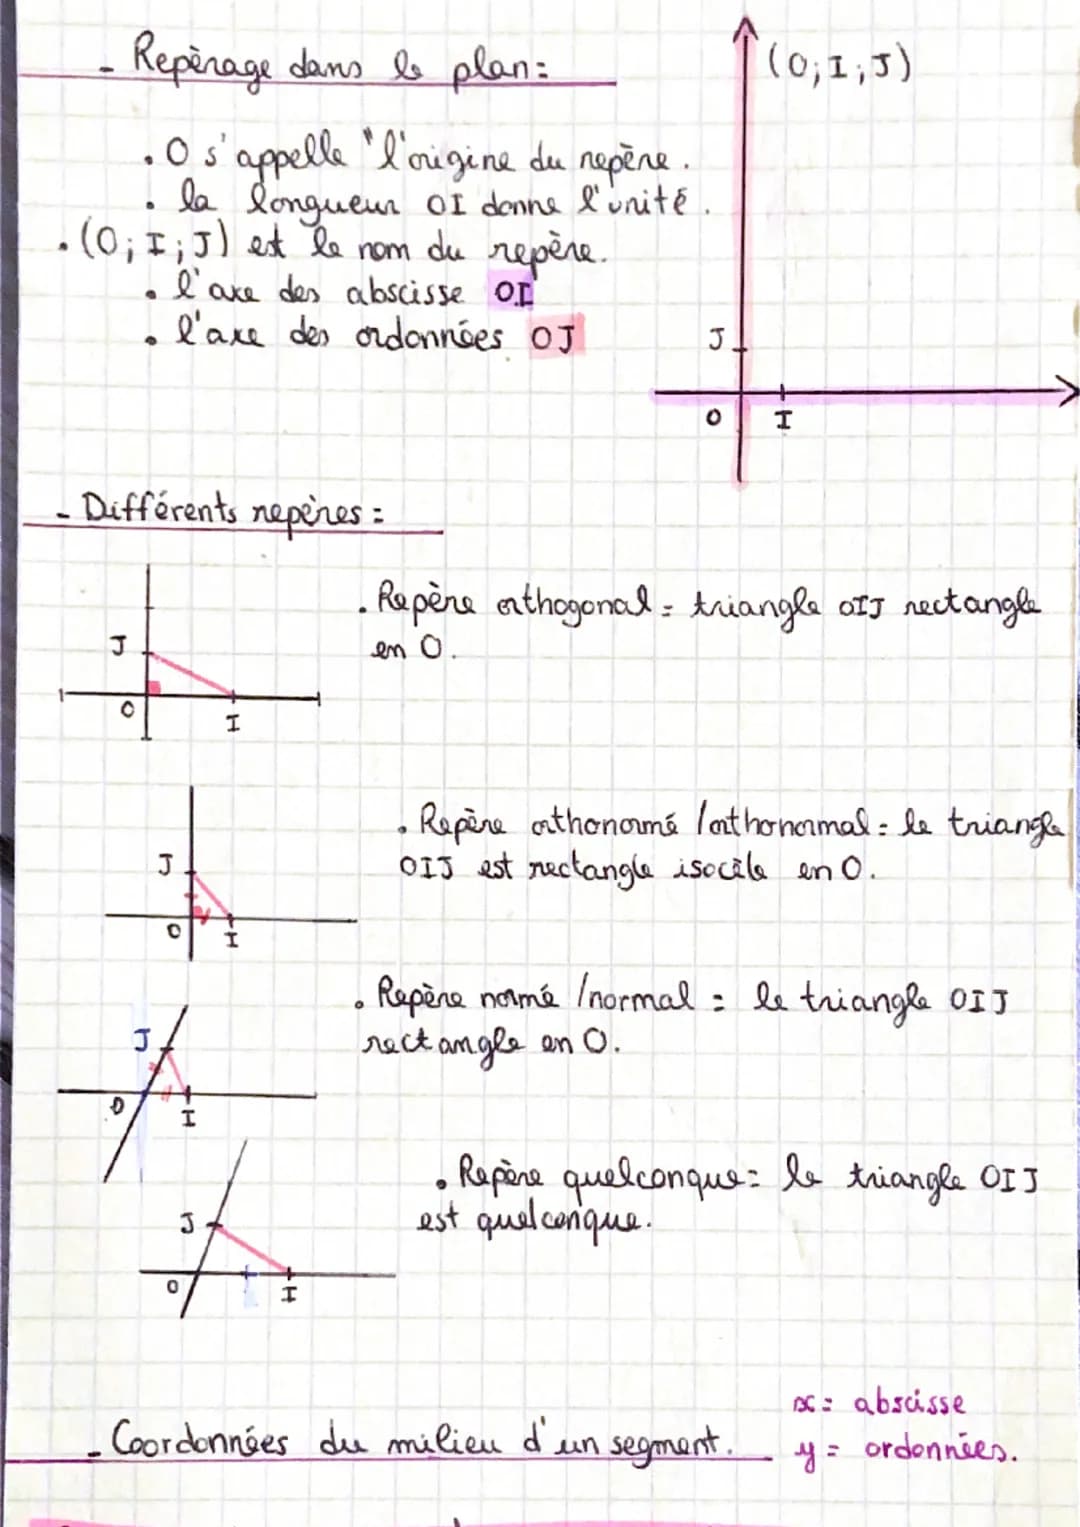 - Repèrage dans le plan:
(O;I;J)
. O s'appelle "l'origine du repère.
. la longueur OI donne l'unité.
. (O;I;J) est le nom du repère.
. l'axe des abscisse OI
. l'axe des ordonnées OJ
J
O I
- Différents repères:
. Repère orthogonal = triangle OIJ rectangle
en O.
J
O
I
. Repère orthonormé / orthonormal = le triangle
OIJ est rectangle isocèle en O.
J
O I
. Repère normé / normal = le triangle OIJ
rectangle en O.
J
O
I
. Repère quelconque = le triangle OIJ
est quelconque.
J
O I
x = abscisse
- Coordonnées du milieu d'un segment.
y = ordonnées.